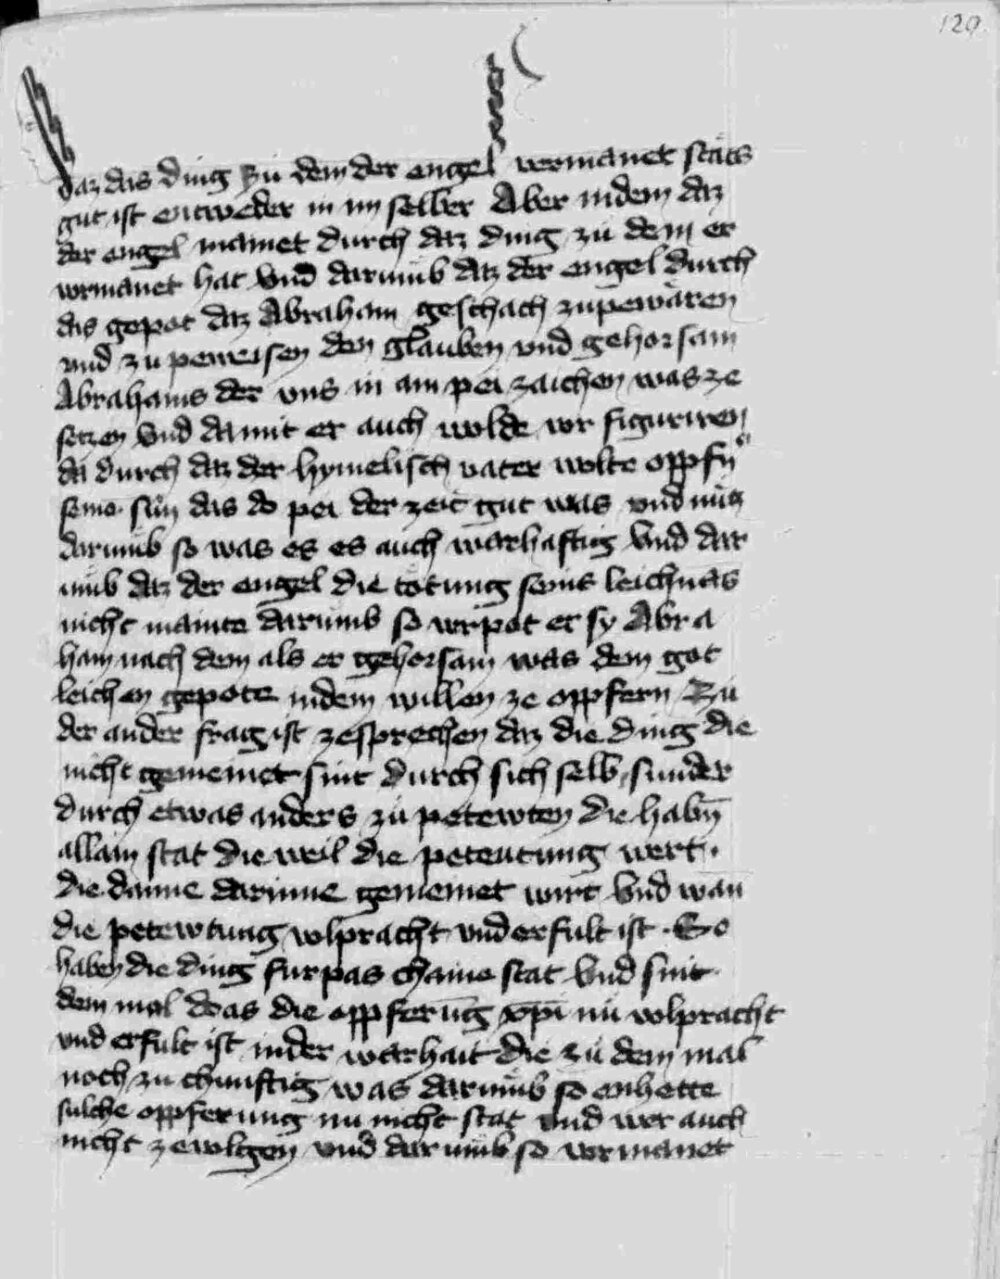 129
daz das ding zu dem der engel vermanet stäts
gut ist entweder in im selber Aber indem daz
der engel manet durch daz ding zu dem er
vermanet hat Vnd darumb daz der engel durch
das gepot daz Abraham geschach zupewären
vnd zu peweisen den glauben vnd gehorsam
Abrahams der vns in ain pei zaichen was ze
setzen Vnd damit er auch wolde vor figuriren
da durch daz der hymelisch vater wolte oppfn
seinē sun das do pei der zeit gut was vnd nucz
darumb so was es es auch warhaftig Vnd dar
umb daz der engel die tötung seins leichnās
nicht mainte darumb so verpot er sy Abra
ham nach dem als er gehorsam was dem got
leichen gepote indem willen ze oppfern Zu
der ander frag ist zesprechen daz die ding die
nicht gemeinet sint durch sich selb sunder
durch etwas anders zu petewten die habn̄
allain stat die weil die peteutung wert
die danne darinne gemeinet wirt Vnd wan̄
die petewtung volpracht vnd erfult ist So
haben die ding furpas chaine stat Vnd sint
dem mal daas die oppferūg xp̄i nu volpracht
vnd erfult ist inder warhait die zu dem mal
noch zu chunftig was darumb so enhette
sulche oppferung nu nicht stat vnd wer auch
nicht ze volgen vnd darumb so vermanet